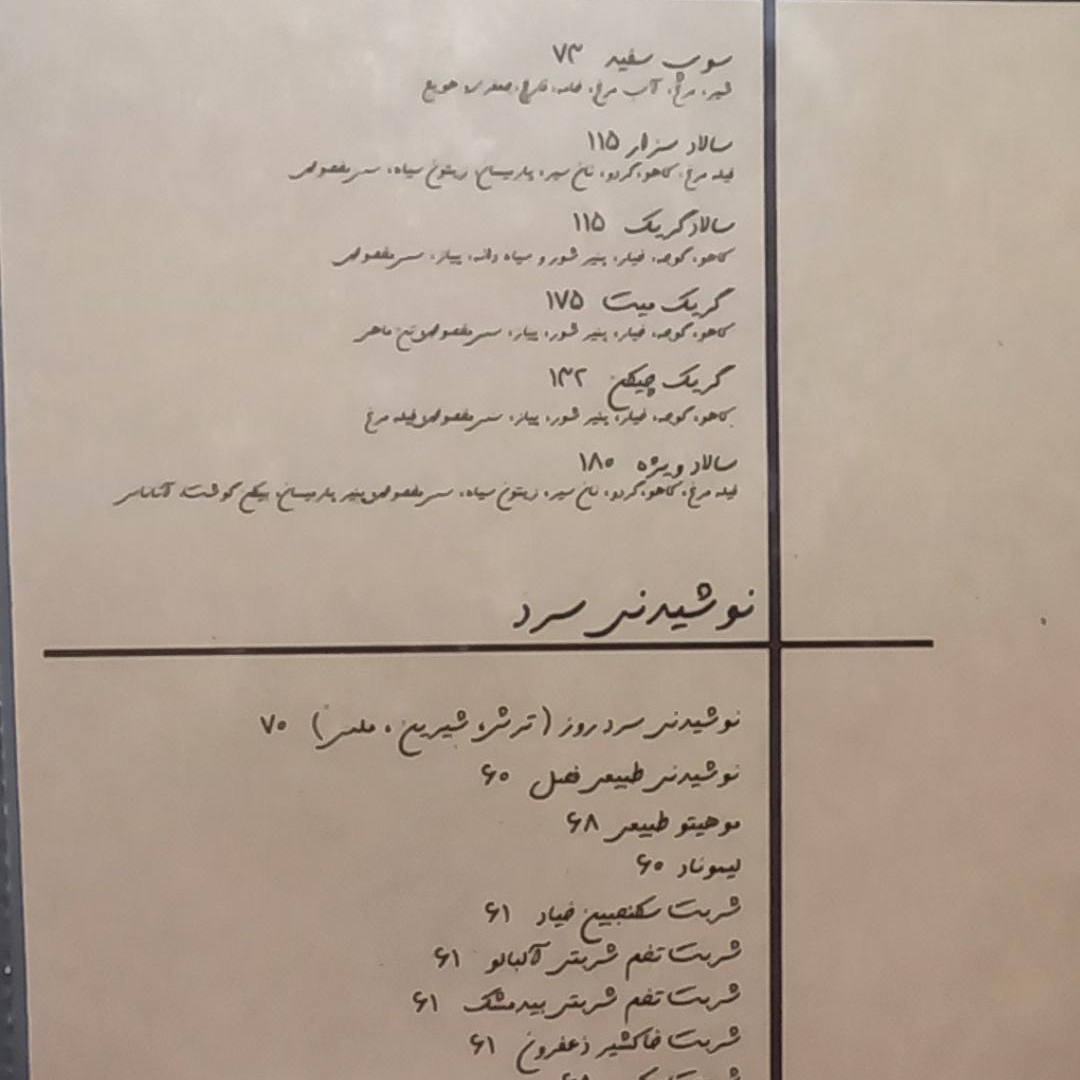 سوپ سفید ۷۳
شیر، مرغ، آب مرغ، خامه، قارچ، جعفری، هویج
سالاد سزار ۱۱۵
فیله مرغ، کاهو، گردو، نان سیر، پارمیسان، زیتون سیاه، سس مخصوص
سالاد گریک ۱۱۵
کاهو، گوجه، خیار، پنیر شور و سیاه دانه، پیاز، سس مخصوص
گریک میت ۱۷۵
کاهو، گوجه، خیار، پنیر شور، پیاز، سس مخصوص، تن ماهی
گریک چیکن ۱۳۲
کاهو، گوجه، خیار، پنیر شور، پیاز، سس مخصوص، فیله مرغ
سالاد ویژه ۱۸۰
فیله مرغ، کاهو، گردو، نان سیر، زیتون سیاه، سس مخصوص، پنیر پارمیسان، بیکن گوشت، آناناس
نوشیدنی سرد
نوشیدنی سرد روز (ترش، شیرین، ملس) ۷۰
نوشیدنی طبیعی فصل ۶۰
موهیتو طبیعی ۶۸
لیموناد ۶۰
شربت سکنجبین خیار ۶۱
شربت تخم شربتی آلبالو ۶۱
شربت تخم شربتی بیدمشک ۶۱
شربت خاکشیر زعفرون ۶۱